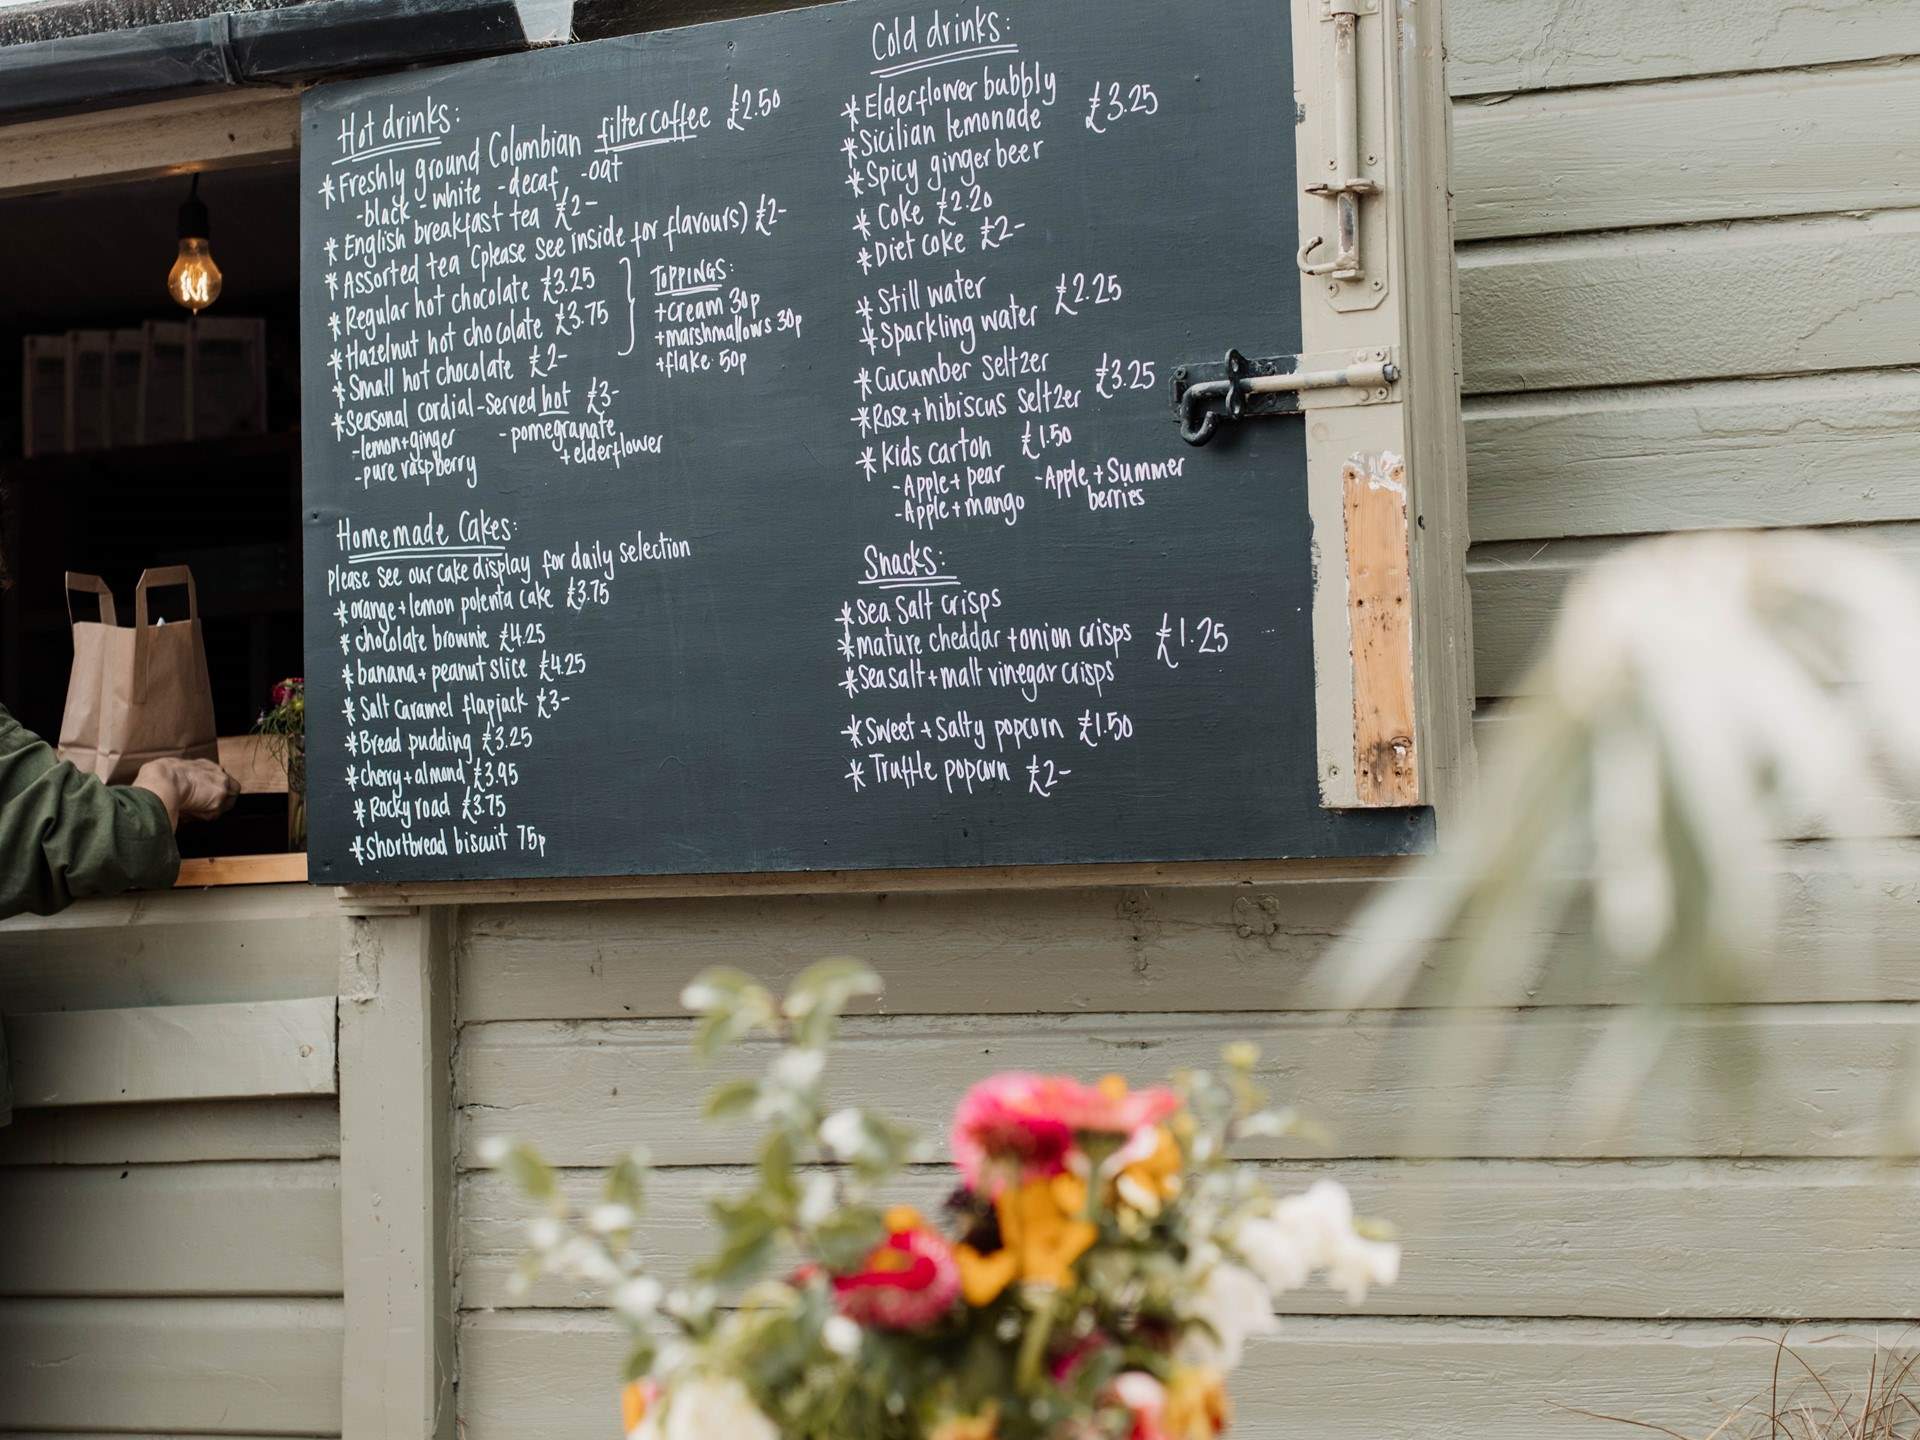 Hot drinks:
* Freshly ground Colombian filter coffee £2.50
-black -white -decaf -oat
* English breakfast tea £2-
* Assorted tea (please see inside for flavours) £2-
* Regular hot chocolate £3.25
* Hazelnut hot chocolate £3.75
* Small hot chocolate £2-
TOPPINGS:
+cream 30p
+marshmallows 30p
+flake 50p
* Seasonal cordial -served hot £3-
-lemon+ginger
-pure raspberry
-pomegranate
+elderflower
Homemade Cakes:
Please see our cake display for daily selection
* orange + lemon polenta cake £3.75
* chocolate brownie £4.25
* banana + peanut slice £4.25
* Salt caramel flapjack £3-
* Bread pudding £3.25
* cherry + almond £3.95
* Rocky road £3.75
* Shortbread biscuit 75p
Cold drinks:
* Elderflower bubbly
* Sicilian lemonade £3.25
* Spicy ginger beer
* Coke £2.20
* Diet coke £2-
* Still water
* Sparkling water £2.25
* Cucumber Seltzer
* Rose + hibiscus Seltzer £3.25
* Kids carton £1.50
-Apple + pear
-Apple + mango
-Apple + Summer
berries
Snacks:
* Sea Salt crisps
* mature cheddar + onion crisps £1.25
* Sea salt + malt vinegar crisps
* Sweet + Salty popcorn £1.50
* Truffle popcorn £2-